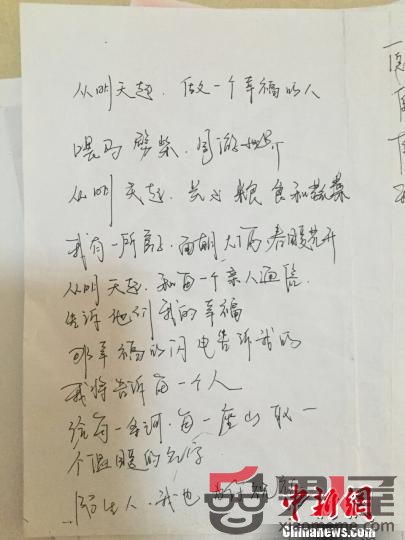 从明天起．做一个幸福的人
喂马劈柴．周游世界
从明天起．关心粮食和蔬菜
我有一所房子．面朝大海春暖花开
从明天起．和每一个亲人通信．
告诉他们我的幸福
那幸福的闪电告诉我的
我将告诉每一个人
给每一条河．每一座山取一
个温暖的名字
陌生人．我也
中新網
www.chinanews.com